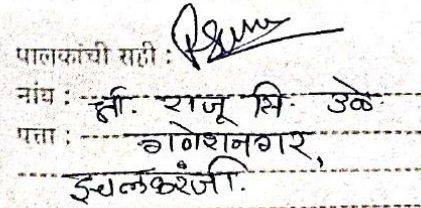 पालकांची सही :
नांव : श्री. राजू सि. उळे
पत्ता : गणेशनगर,
इचलकरंजी.